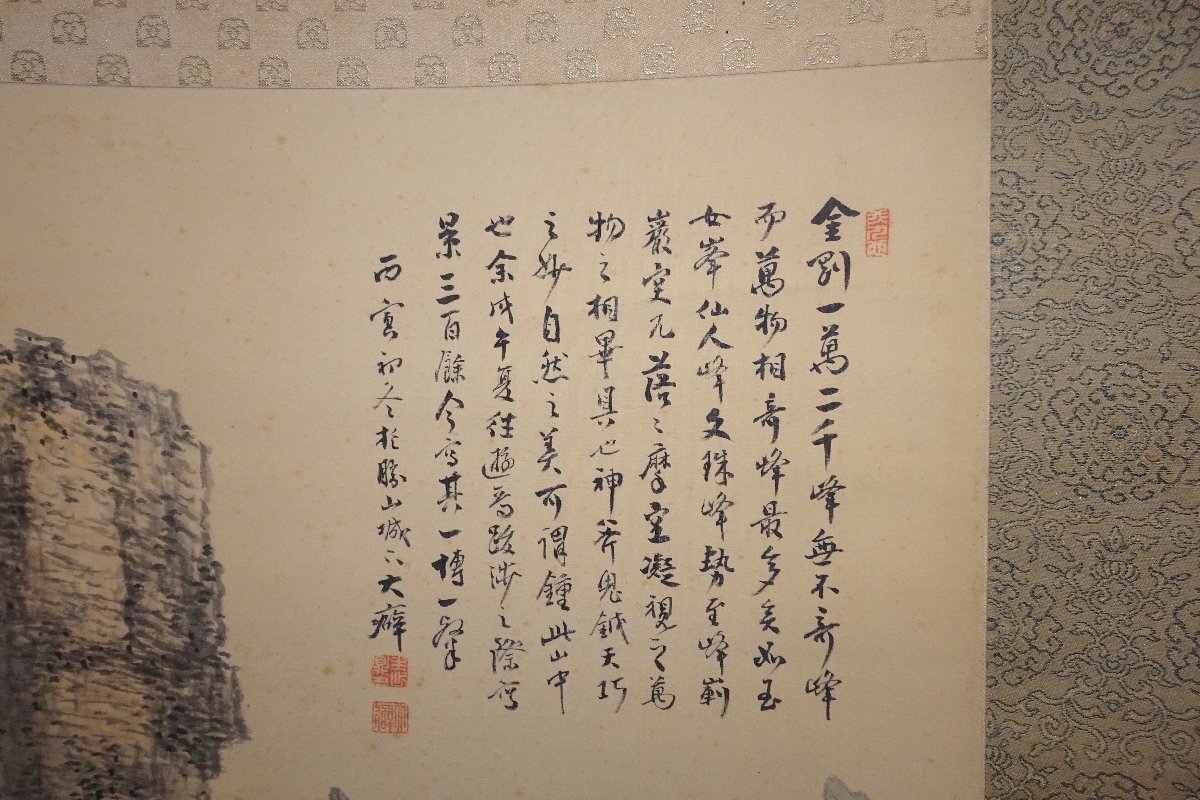 金剛一萬二千峰無不奇峰
而萬物相奇峰最多矣如玉
女峯仙人峰文珠峰勢至峰
巖突兀落々摩空凝視之萬
物之相畢具也神斧鬼鉞天巧
之妙自然之美可謂鍾此山中
也余戊午夏往遊焉跋渉之際寫
景三百餘今寫其一博一粲
丙寅初冬於勝山城下大癖